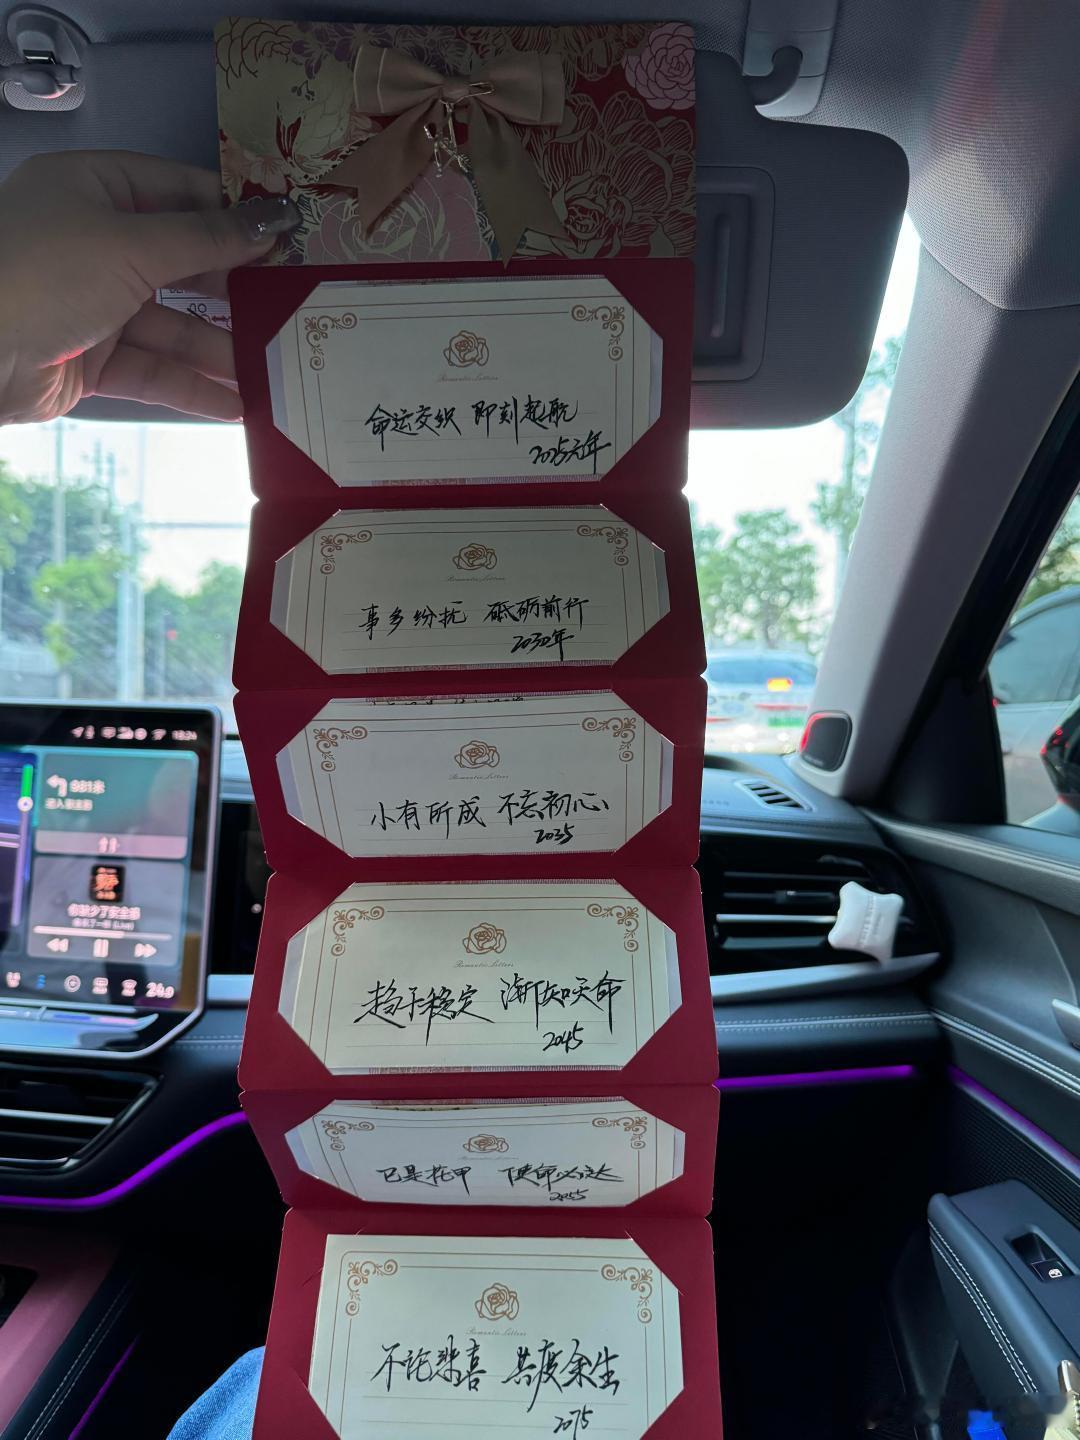 Romantic Letters
命运交织 即刻起航
2025元年
Romantic Letters
事多纷扰 砥砺前行
2030年
Romantic Letters
小有所成 不忘初心
2035
Romantic Letters
趋于稳定 渐知天命
2045
已是花甲 使命必达
2055
Romantic Letters
不论悲喜 共度余生
2075
981米
进入
18:24
24.0